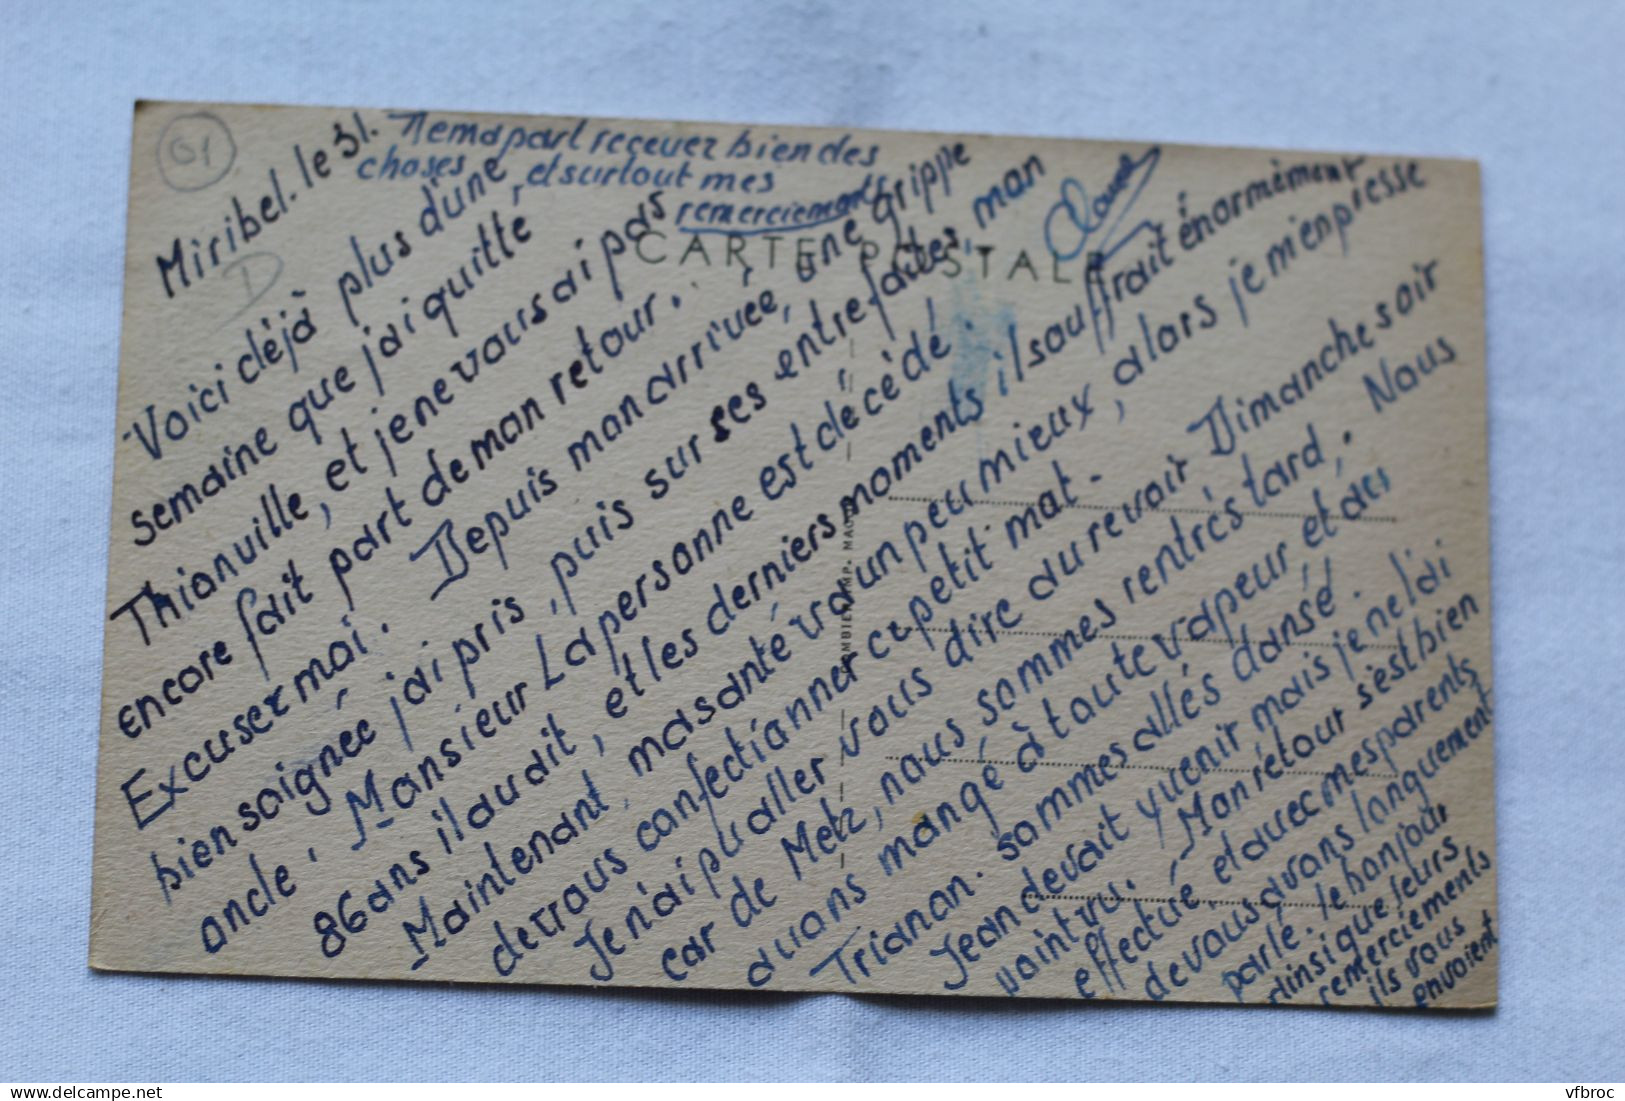 01
D
Miribel. le 31.
Voici déjà plus d'une
semaine que j'ai quitté
Thionville, et je ne vous ai pas
encore fait part de mon retour.
Excuser moi. Depuis mon arrivée, une grippe
bien soignée j'ai pris, puis sur ses entrefaites, mon
oncle, Monsieur Lapersonne est décédé !
86 ans il audit, et les derniers moments il souffrait énormément
Maintenant, ma santé va un peu mieux, alors je m'empresse
de vous confectionner ce petit mot.
Je n'ai pu aller vous dire au revoir Dimanche soir
car de Metz, nous sommes rentrés tard. Nous
avons mangé à toute vapeur, et au
Trianon. sommes allés dansé.
Jean devait y venir mais je ne l'ai
point vu. Mon retour s'est bien
effectué, et avec mes parents
de vous avons longuement
parlé. le bonjour
ainsi que leurs
remerciements
ils vous
envoient
De ma part recever bien des
choses, et surtout mes
remerciements
CARTE POSTALE
COMBIER IMP. MACON